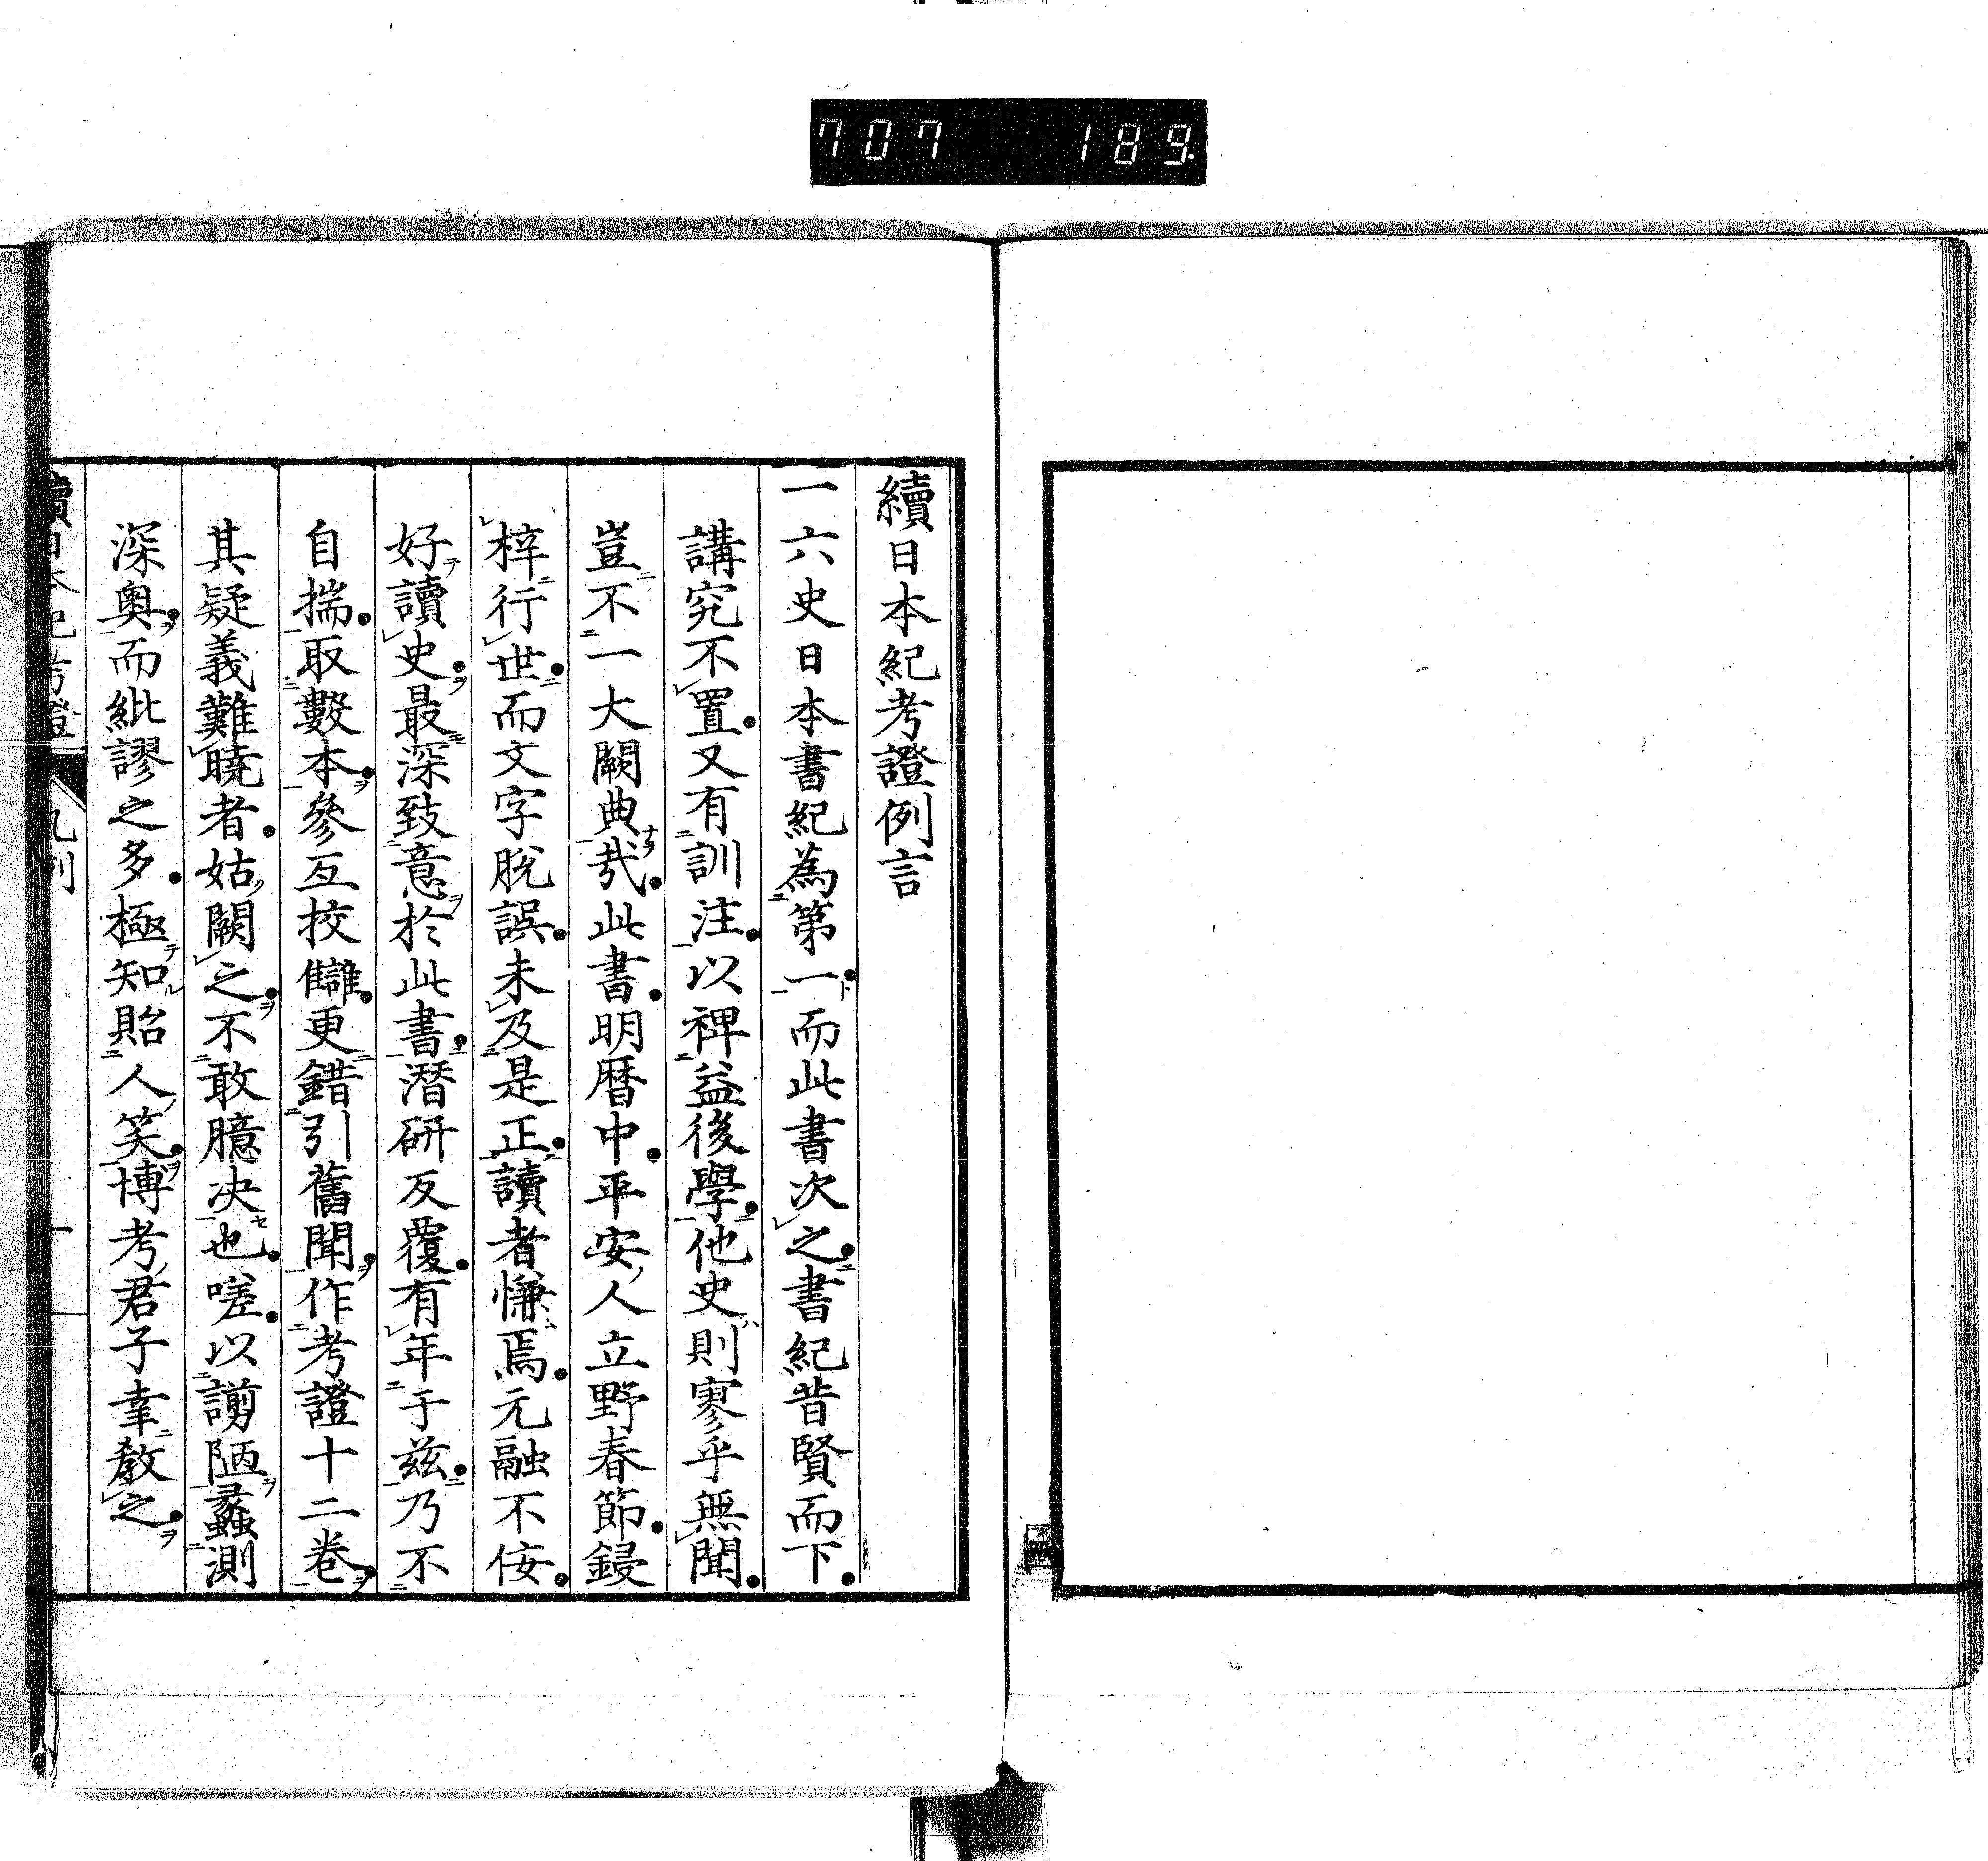 707 189
續日本紀考證例言
一六史日本書紀為第一而此書次之書紀昔賢而下
講究不置又有訓注以裨益後學他史則寥乎無聞
豈不一大闕典哉此書明曆中平安人立野春節鋟
梓行世而文字脫誤未及是正讀者慊焉元融不侫
好讀史最深致意於此書潛研反覆有年于兹乃不
自揣取數本參互挍讎更錯引舊聞作考證十二卷
其疑義難曉者姑闕之不敢臆決也嗟以謭陋蠡測
深奧而紕謬之多極知貽人笑博考君子幸教之
續日本紀考證 凡例 一